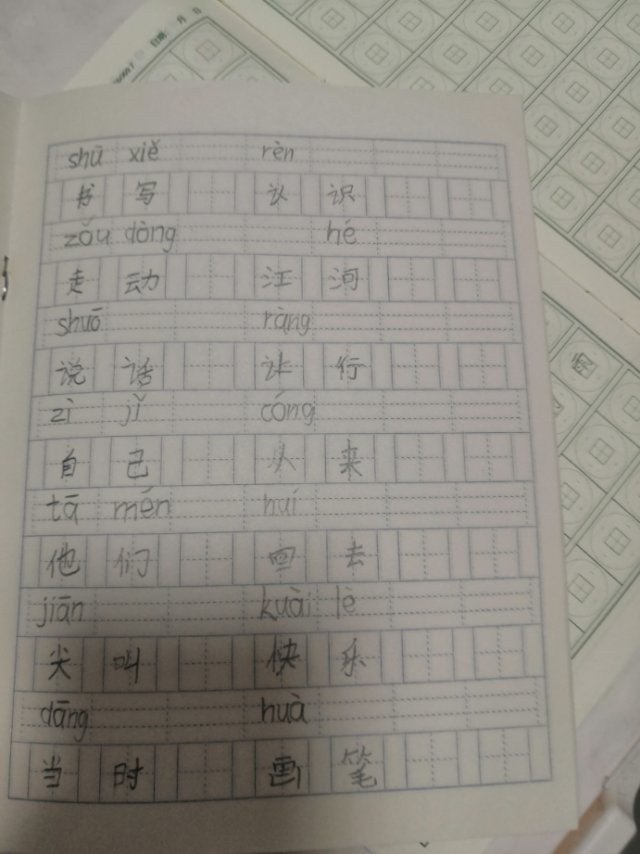 shū xiě rèn
书 写 认 识
zǒu dòng hé
走 动 江 河
shuō ràng
说 话 让 行
zì jǐ cóng
自 己 从 来
tā mén huí
他 们 回 去
jiān kuài lè
尖 叫 快 乐
dāng huà
当 时 画 笔